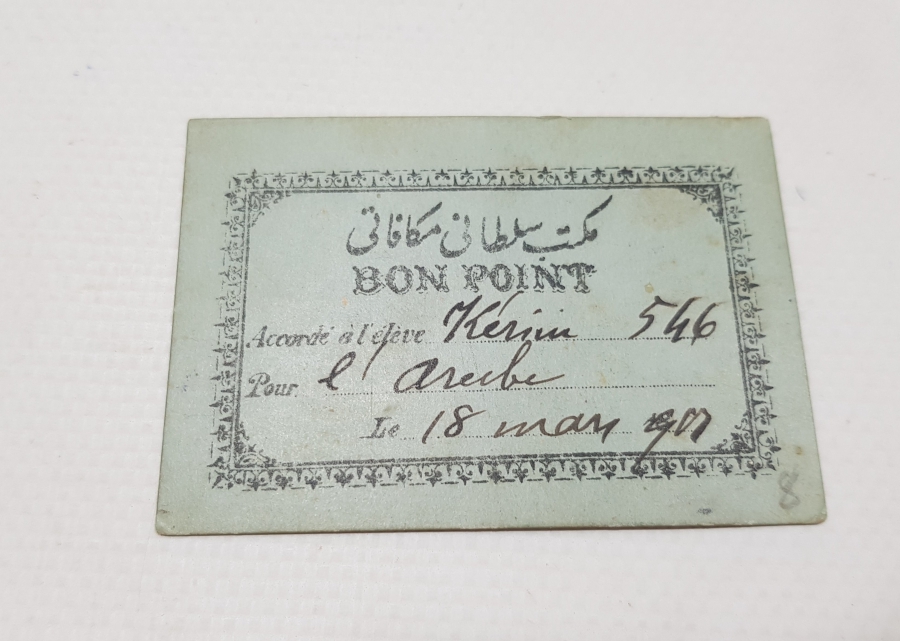 مكتب سلطانی مكافاتی
BON POINT
Accordé à l'élève Kérim 546
Pour l'Arabe
Le 18 mars 1907
8